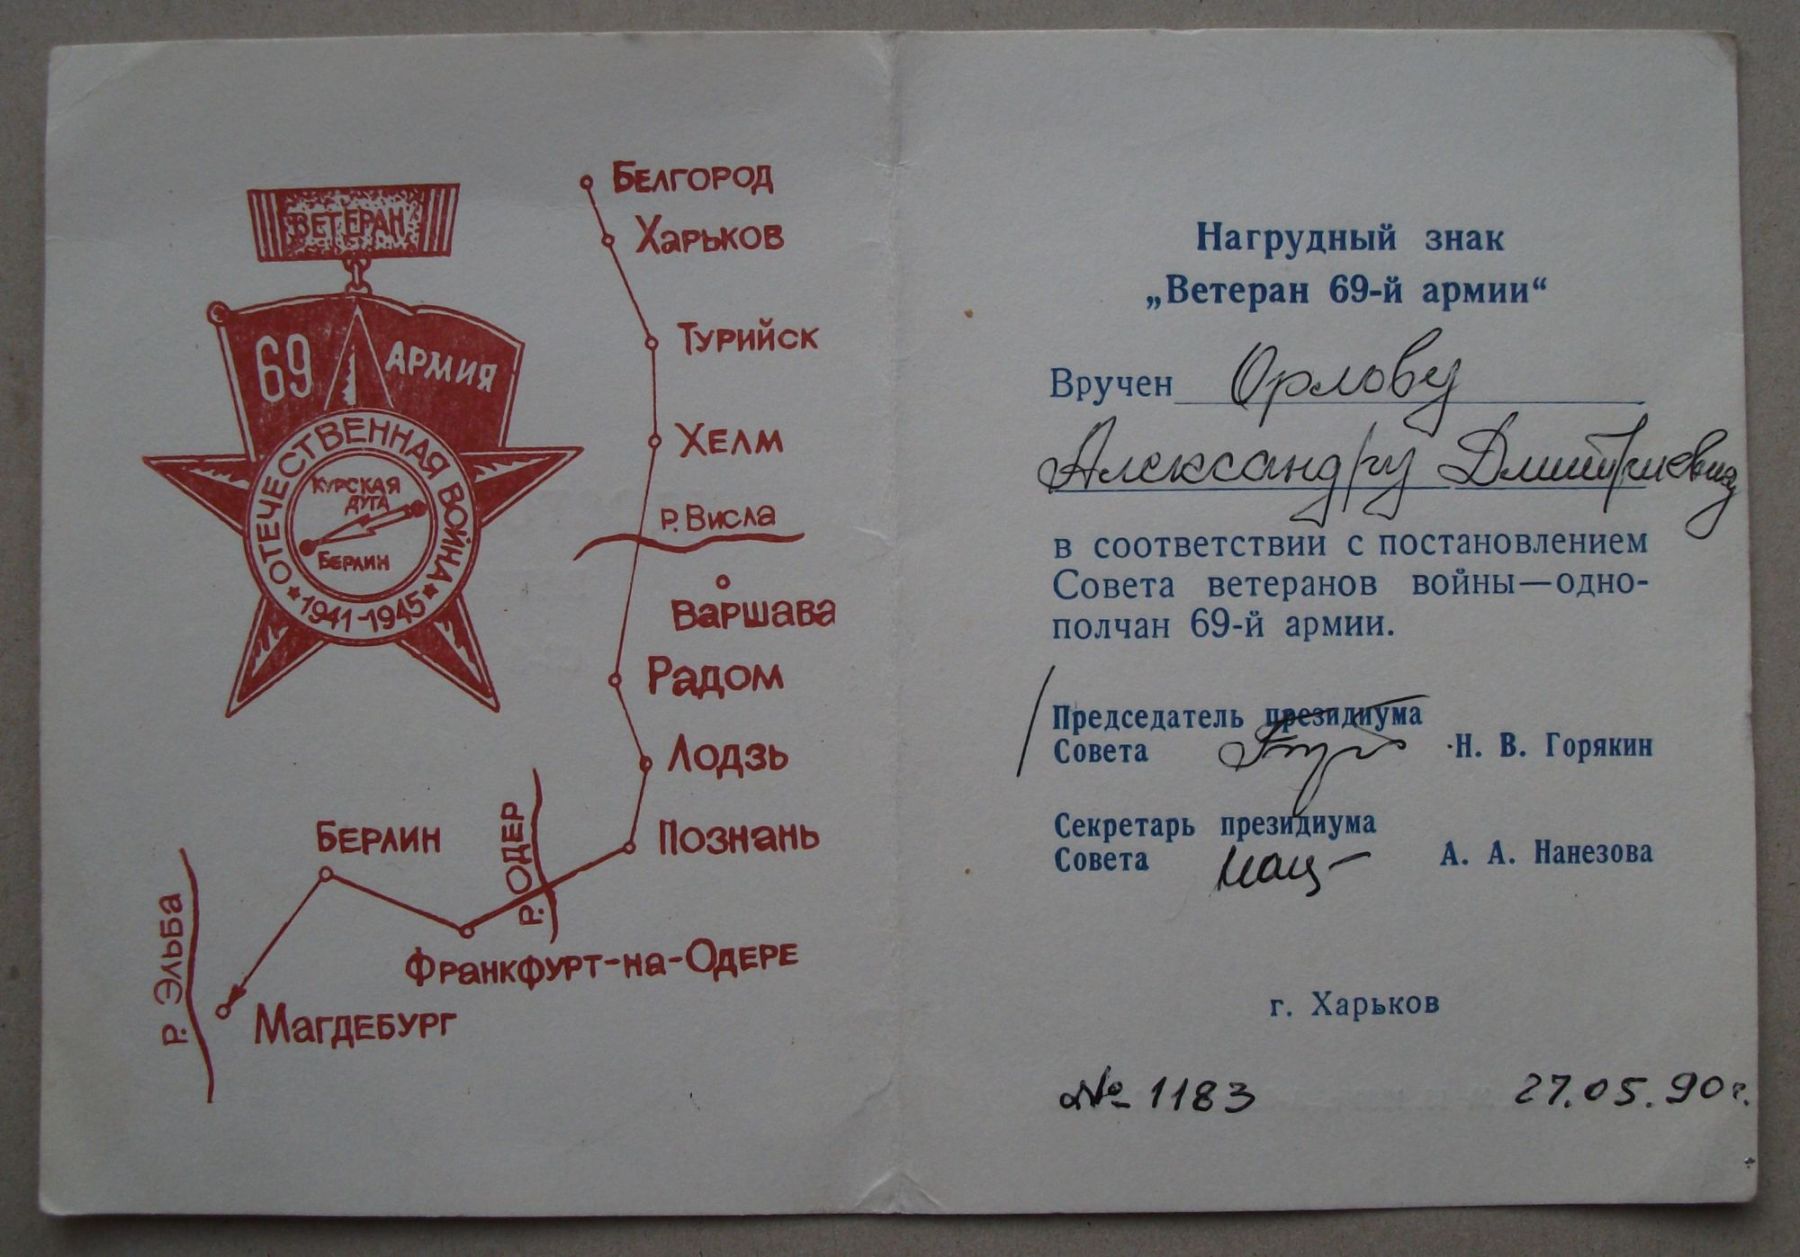 ВЕТЕРАН
69 АРМИЯ
ОТЕЧЕСТВЕННАЯ ВОЙНА
КУРСКАЯ
ДУГА
БЕРЛИН
1941-1945
БЕЛГОРОД
ХАРЬКОВ
ТУРИЙСК
ХЕЛМ
Р. ВИСЛА
ВАРШАВА
РАДОМ
ЛОДЗЬ
ПОЗНАНЬ
Р. ОДЕР
БЕРЛИН
ФРАНКФУРТ-НА-ОДЕРЕ
Р. ЭЛЬБА
МАГДЕБУРГ
Нагрудный знак
„Ветеран 69-й армии“
Вручен Орлову
Александру Дмитриевичу
в соответствии с постановлением
Совета ветеранов войны—одно-
полчан 69-й армии.
Председатель президиума
Совета Н. В. Горякин
Секретарь президиума
Совета А. А. Нанезова
г. Харьков
№ 1183 27.05.90г.